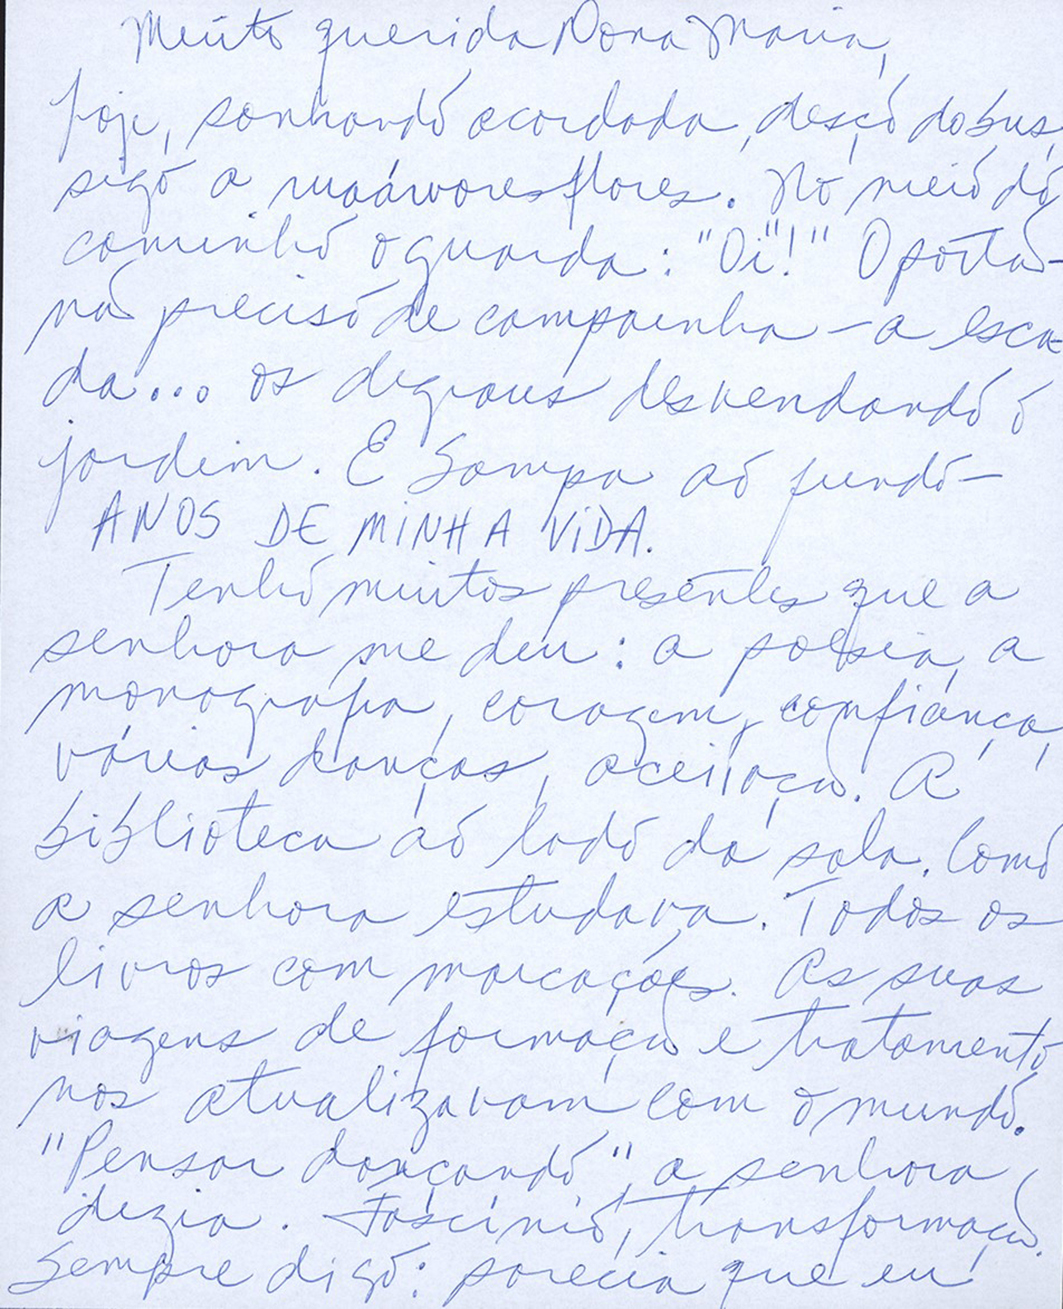 Muito querida Dona Maria,
hoje, sonhando acordada, desço do bus,
sigo a ruaárvoresflores. No meio do
caminho o guarda: "Oi"!" O portão-
não preciso de campainha - a esca
da... os degraus desvendando o
jardim. E Sampa ao fundo-
ANOS DE MINHA VIDA.
Tenho muitos presentes que a
senhora me deu: a poesia, a
monografia, coragem, confiança,
várias danças, aceitação. A
biblioteca ao lado da sala. Como
a senhora estudava. Todos os
livros com marcações. As suas
viagens de formação e tratamento
nos atualizavam com o mundo.
"Pensar dançando", a senhora
dizia. Fascínio, transformação.
Sempre digo: parecia que eu